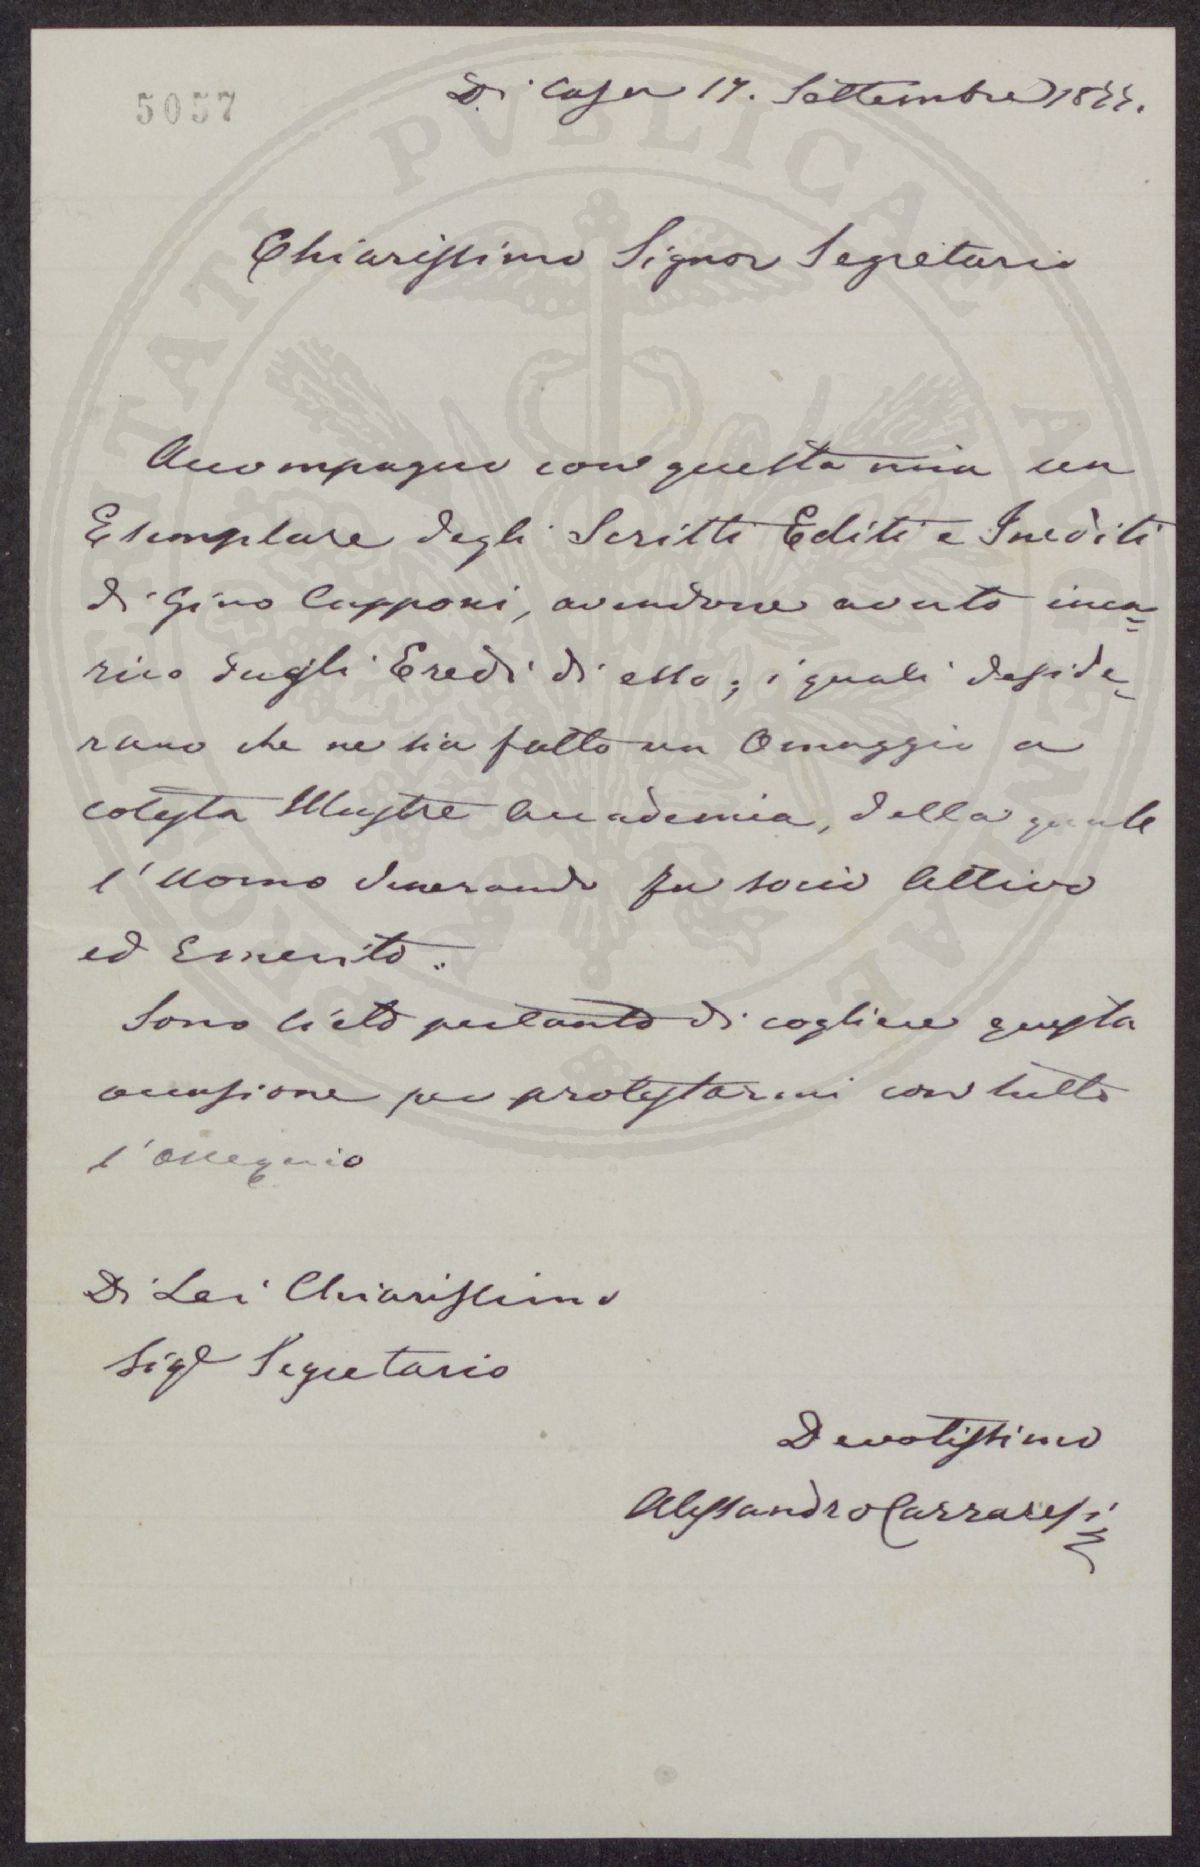 5057
Di Casa 17. Settembre 1877.
Chiarissimo Signor Segretario
Accompagno con questa mia un
Esemplare degli Scritti Editi e Inediti
di Gino Capponi, avendone avuto inca=
rico dagli Eredi di esso; i quali deside=
rano che ne sia fatto un Omaggio a
cotesta Illustre Accademia, della quale
l'Uomo Venerando fu socio Attivo
ed Emerito.
Sono lieto pertanto di cogliere questa
occasione per protestarmi con tutto
l'ossequio
Di Lei Chiarissimo
Sigr Segretario
Devotissimo
Alessandro Carraresi